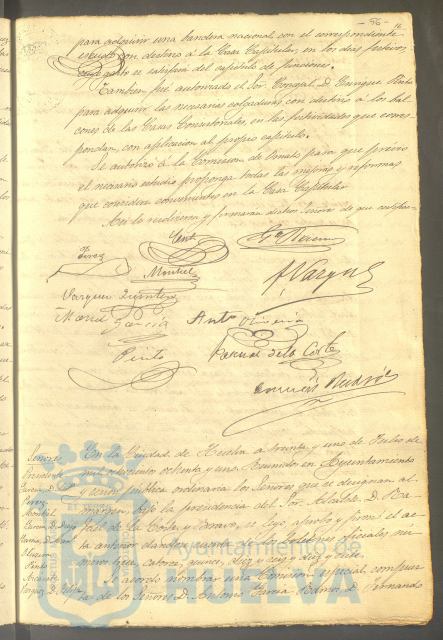 - 56 -
para adquirir una bandera nacional con el correspondiente
escudo con destino a la Casa Capitular, en los dias festivos,
cuyo gasto se satisfará del capitulo de funciones.
Tambien fue autorizado el Sor. Concejal D. Enrique Pinto
para adquirir las necesarias colgaduras con destino a los bal-
cones de las Casas Consistoriales, en las festividades que corres-
pondan, con aplicacion al propio capitulo.
Se autorizó a la Comision de Ornato para que previo
el necesario estudio proponga todas las mejoras y reformas
que considere convenientes en la Casa Capitular
Asi lo resolvieron y firmaran dichos Señores de que certifico=
Perez
Montiel
F Vargas
Vazquez
Garcia
Anto Oliveira
Pinto
Bernal de la Corte
Señores
Presidente
Garcia, D.
Perez
Montiel
Garcia, D. Diego
Oliveira
Pinto
Vazquez, D.
En la Ciudad de Huelva a treinta y uno de Julio de
mil ochocientos ochenta y uno. Reunido en Ayuntamiento
y sesion pública ordinaria los Señores que se designan al
margen, bajo la presidencia del Sor. Alcalde D. Ra-
fael de la Corte y Bravo, se leyó, aprobó y firmó el ac-
ta anterior dandose cuenta de los boletines oficiales nú-
meros trece, catorce, quince, diez y seis y diez y siete.
Se acordó nombrar una Comision especial compues-
ta de los Señores D. Antonio Garcia Ramos, D. Fernando
Ayuntamiento de
HUELVA